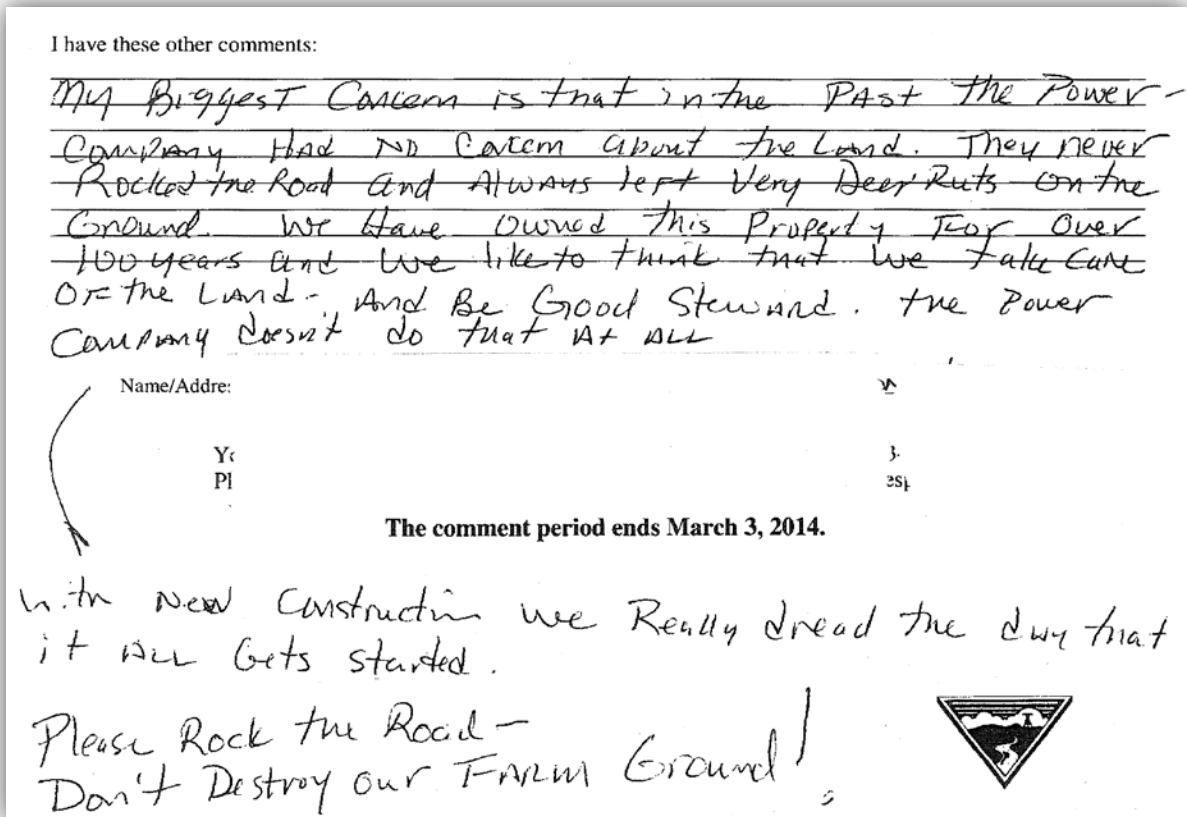 I have these other comments:
My Biggest Concern is that in the PAst the Power-
Company Had No Concern about the Land. They never
Rocked the Road and Always left Very Deep Ruts on the
Ground. We Have owned this Property For Over
100 years and we like to think that we take Care
OF the LAnd- And Be Good Steward. the Power
Company doesn't do that At ALL
Name/Addre:
Yo
Pl
The comment period ends March 3, 2014.
With New Construction we Really dread the day that
it ALL Gets started.
Please Rock the Road-
Don't Destroy our FARM Ground!